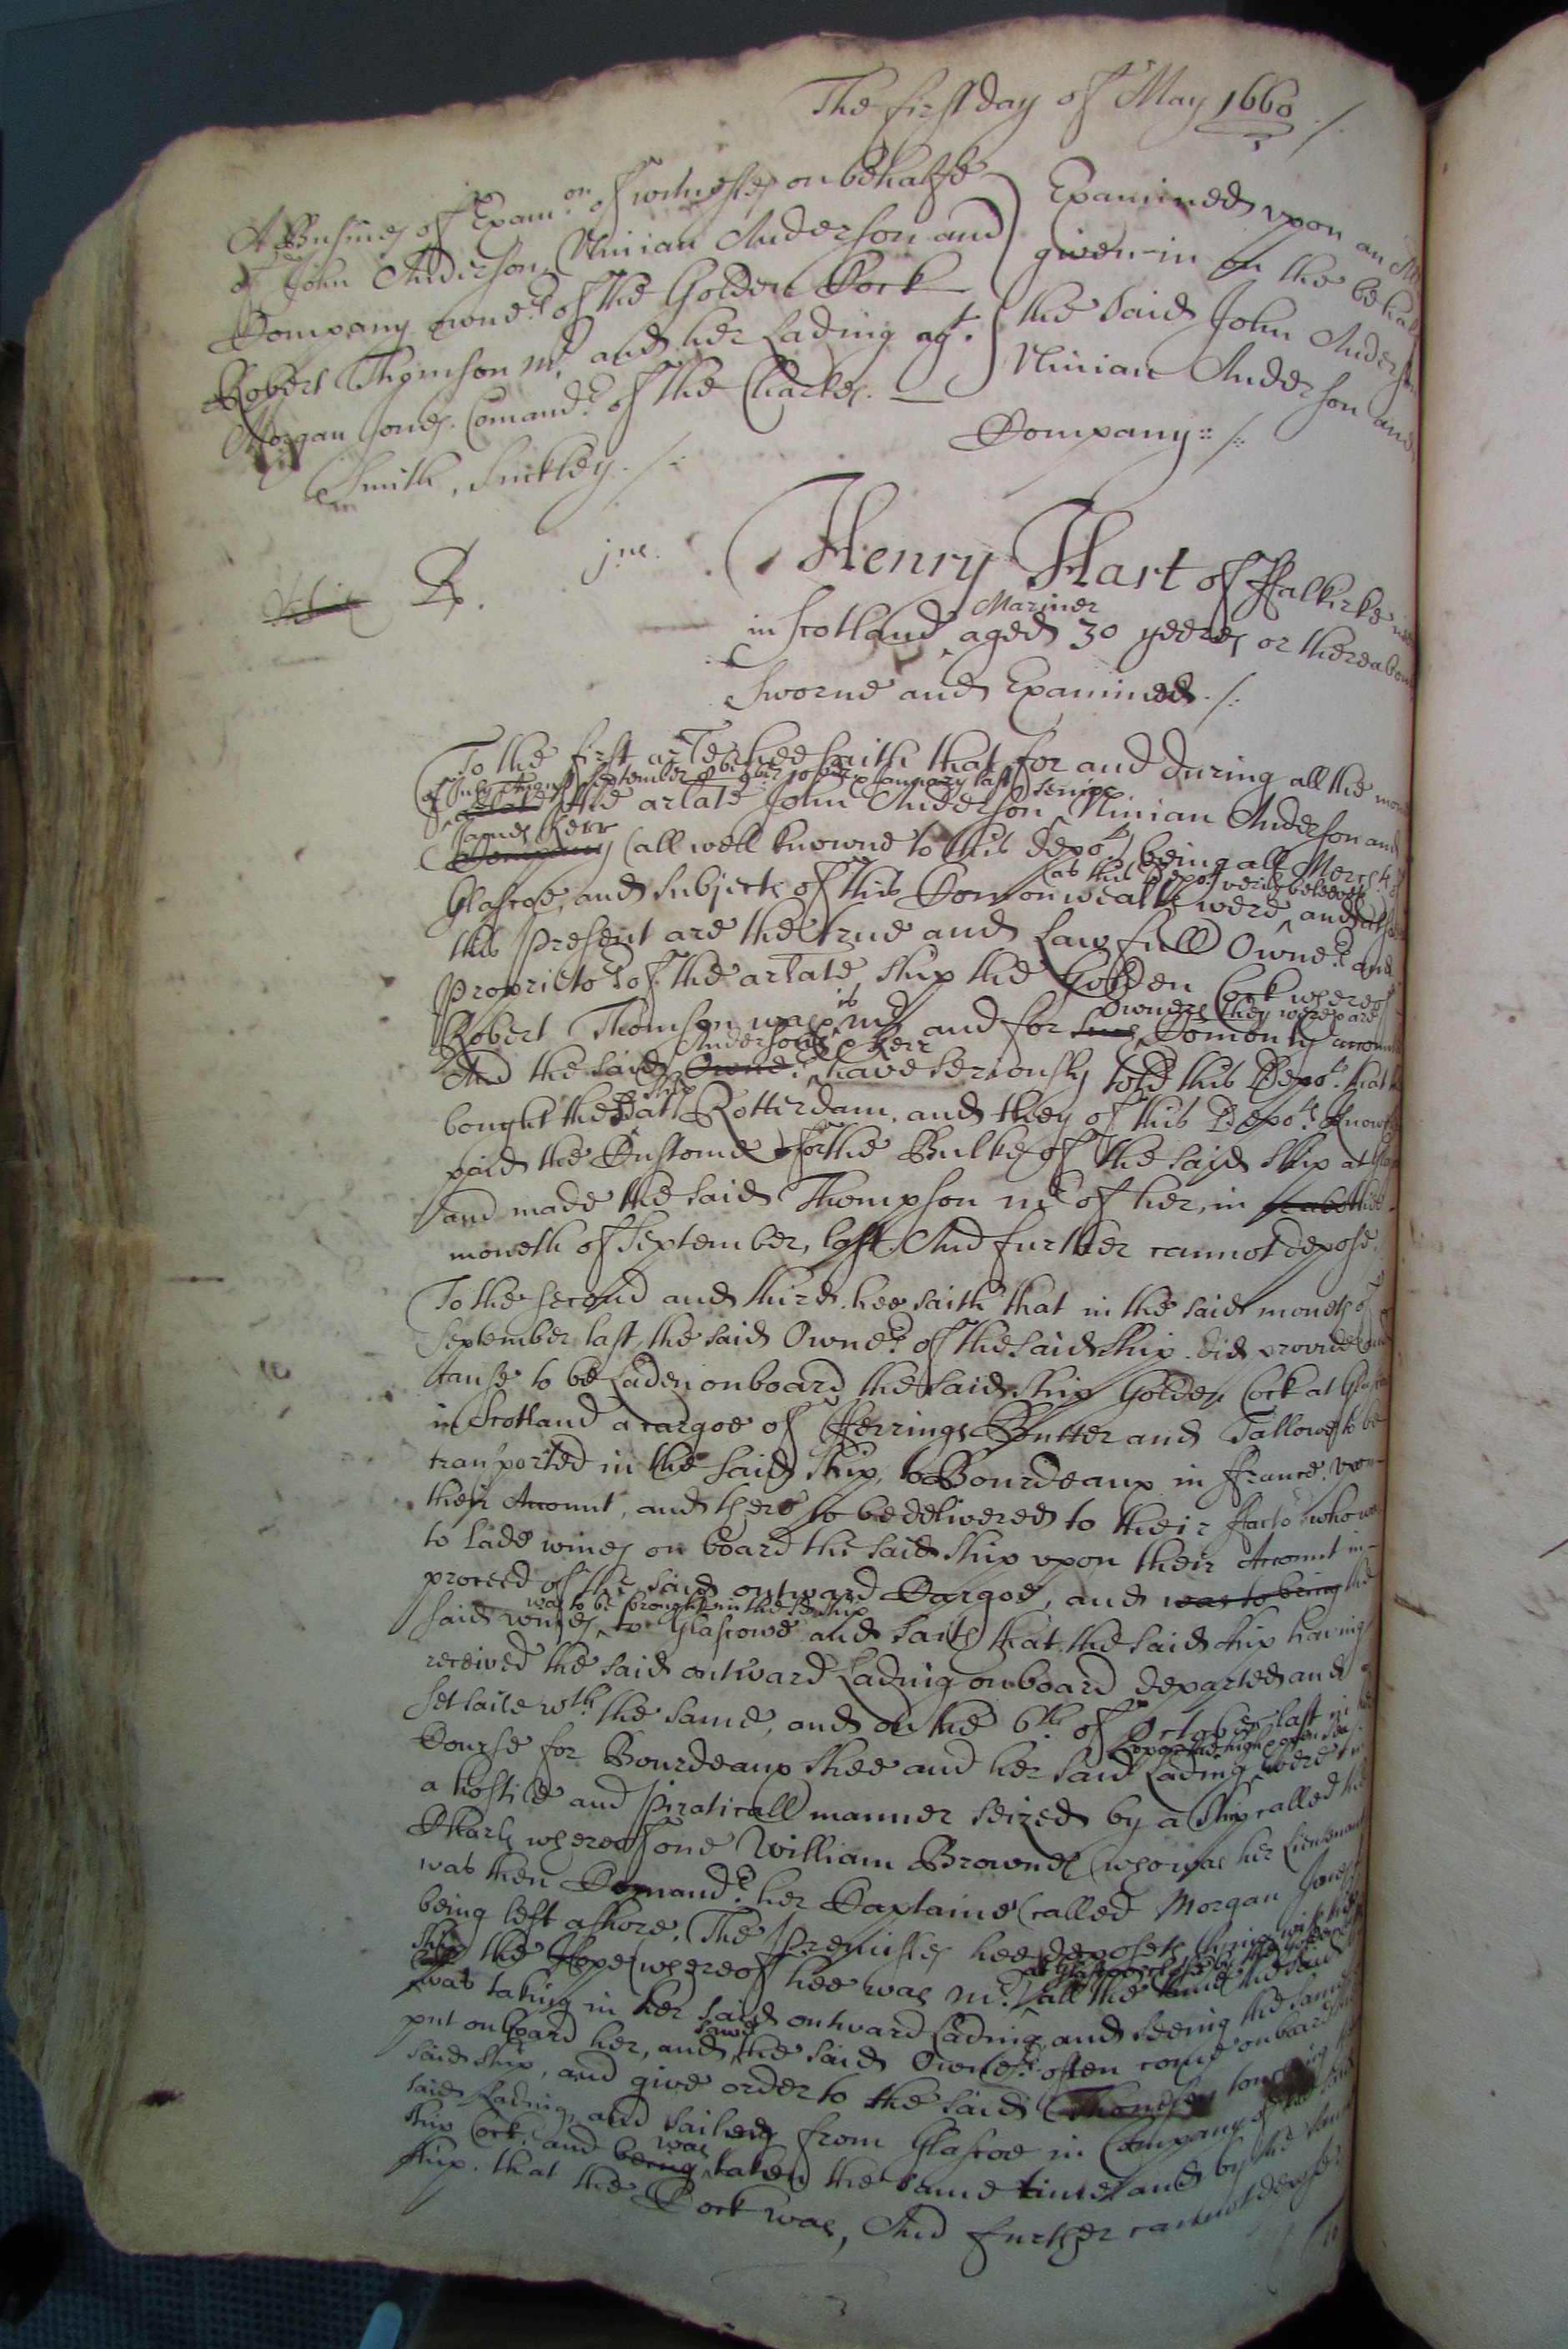 The first day of May 1660 ./.
A Busines of Exam.on of witnesses on behalfe
of John Anderson, Ninian Anderson and
Company owne.rs of the Golden Cock
Robert Thomson m.r and her Lading ag.t
Morgan Jones Comand.r of the Charles. —
Smith, Suckley ./.
Examined upon an
given-in on the behalf
the said John Anderson
Ninian Anderson and
Company :: /:
R. j.us
Henry Hart of Ffalkirke
Mariner
in Scotland aged 30 yeeres or thereabouts
Sworne and Examined ./:
To the first ar.le hee saith that for and during all the
of July August September October January last
the arlate John Anderson senior Ninian Anderson and
James Kerr
Company (all well knowne to this depo.t) being all Merch.ts of
(as this depo.t verily beleeveth)
Glascoe, and subjects of this Comonwealth were and at
this present are the true and Lawfull Owne.rs and
proprieto.rs of the arlate ship the Golden Cock whereof
Robert Thomson was m.r and for such Owners they were are Comonly
Andersons Kerr
And the said Owne.rs have seriously told this Depo.t that
ship
bought the at Rotterdam, and they of this Depo.ts
paid the Custome for the Bulke of the said ship at
and made the said Thompson m.r of her, in
moneth of September, last. And further cannot depose,
To the second and third. hee saith that in the said moneth of
September last, the said Owne.rs of the said ship did provide and
cause to be Laden onboard the said ship Golden Cock at
in Scotland a cargoe of Herrings Butter and Tallowe to be
transported in the said ship, to Bourdeaux in ffrance, upon
their Account, and there to be delivered to their ffacto.r who
to lade wines on board the said ship upon their Account in
proceed of the said outward Cargoe, and was to bring the
was to be brought in the s.d ship
said wines to Glascowe and saith that the said ship having
received the said outward Lading onboard departed and
set saile w.th the same, and on the 6.th of October last in
Course for Bourdeaux shee and her said Lading were in
a hostile and piraticall manner seized by a ship called the
Charles whereof one William Browne (who was her Lieutenant
was then Comand.r her Captaine (called Morgan Jones
being left ashore, The premisses hee deposeth
ship the Hope (whereof hee was m.r) all the time the said
was taking in her said outward Lading, and seeing the same
put onboard her, and sawe the said Owne.rs often come onboard
said ship, and give order to the said Thomson
said Lading, and sailed from Glascoe in Company of the said
ship Cock, and being was taken the same time and by the same
ship. that the Cock was, And further cannot depose.